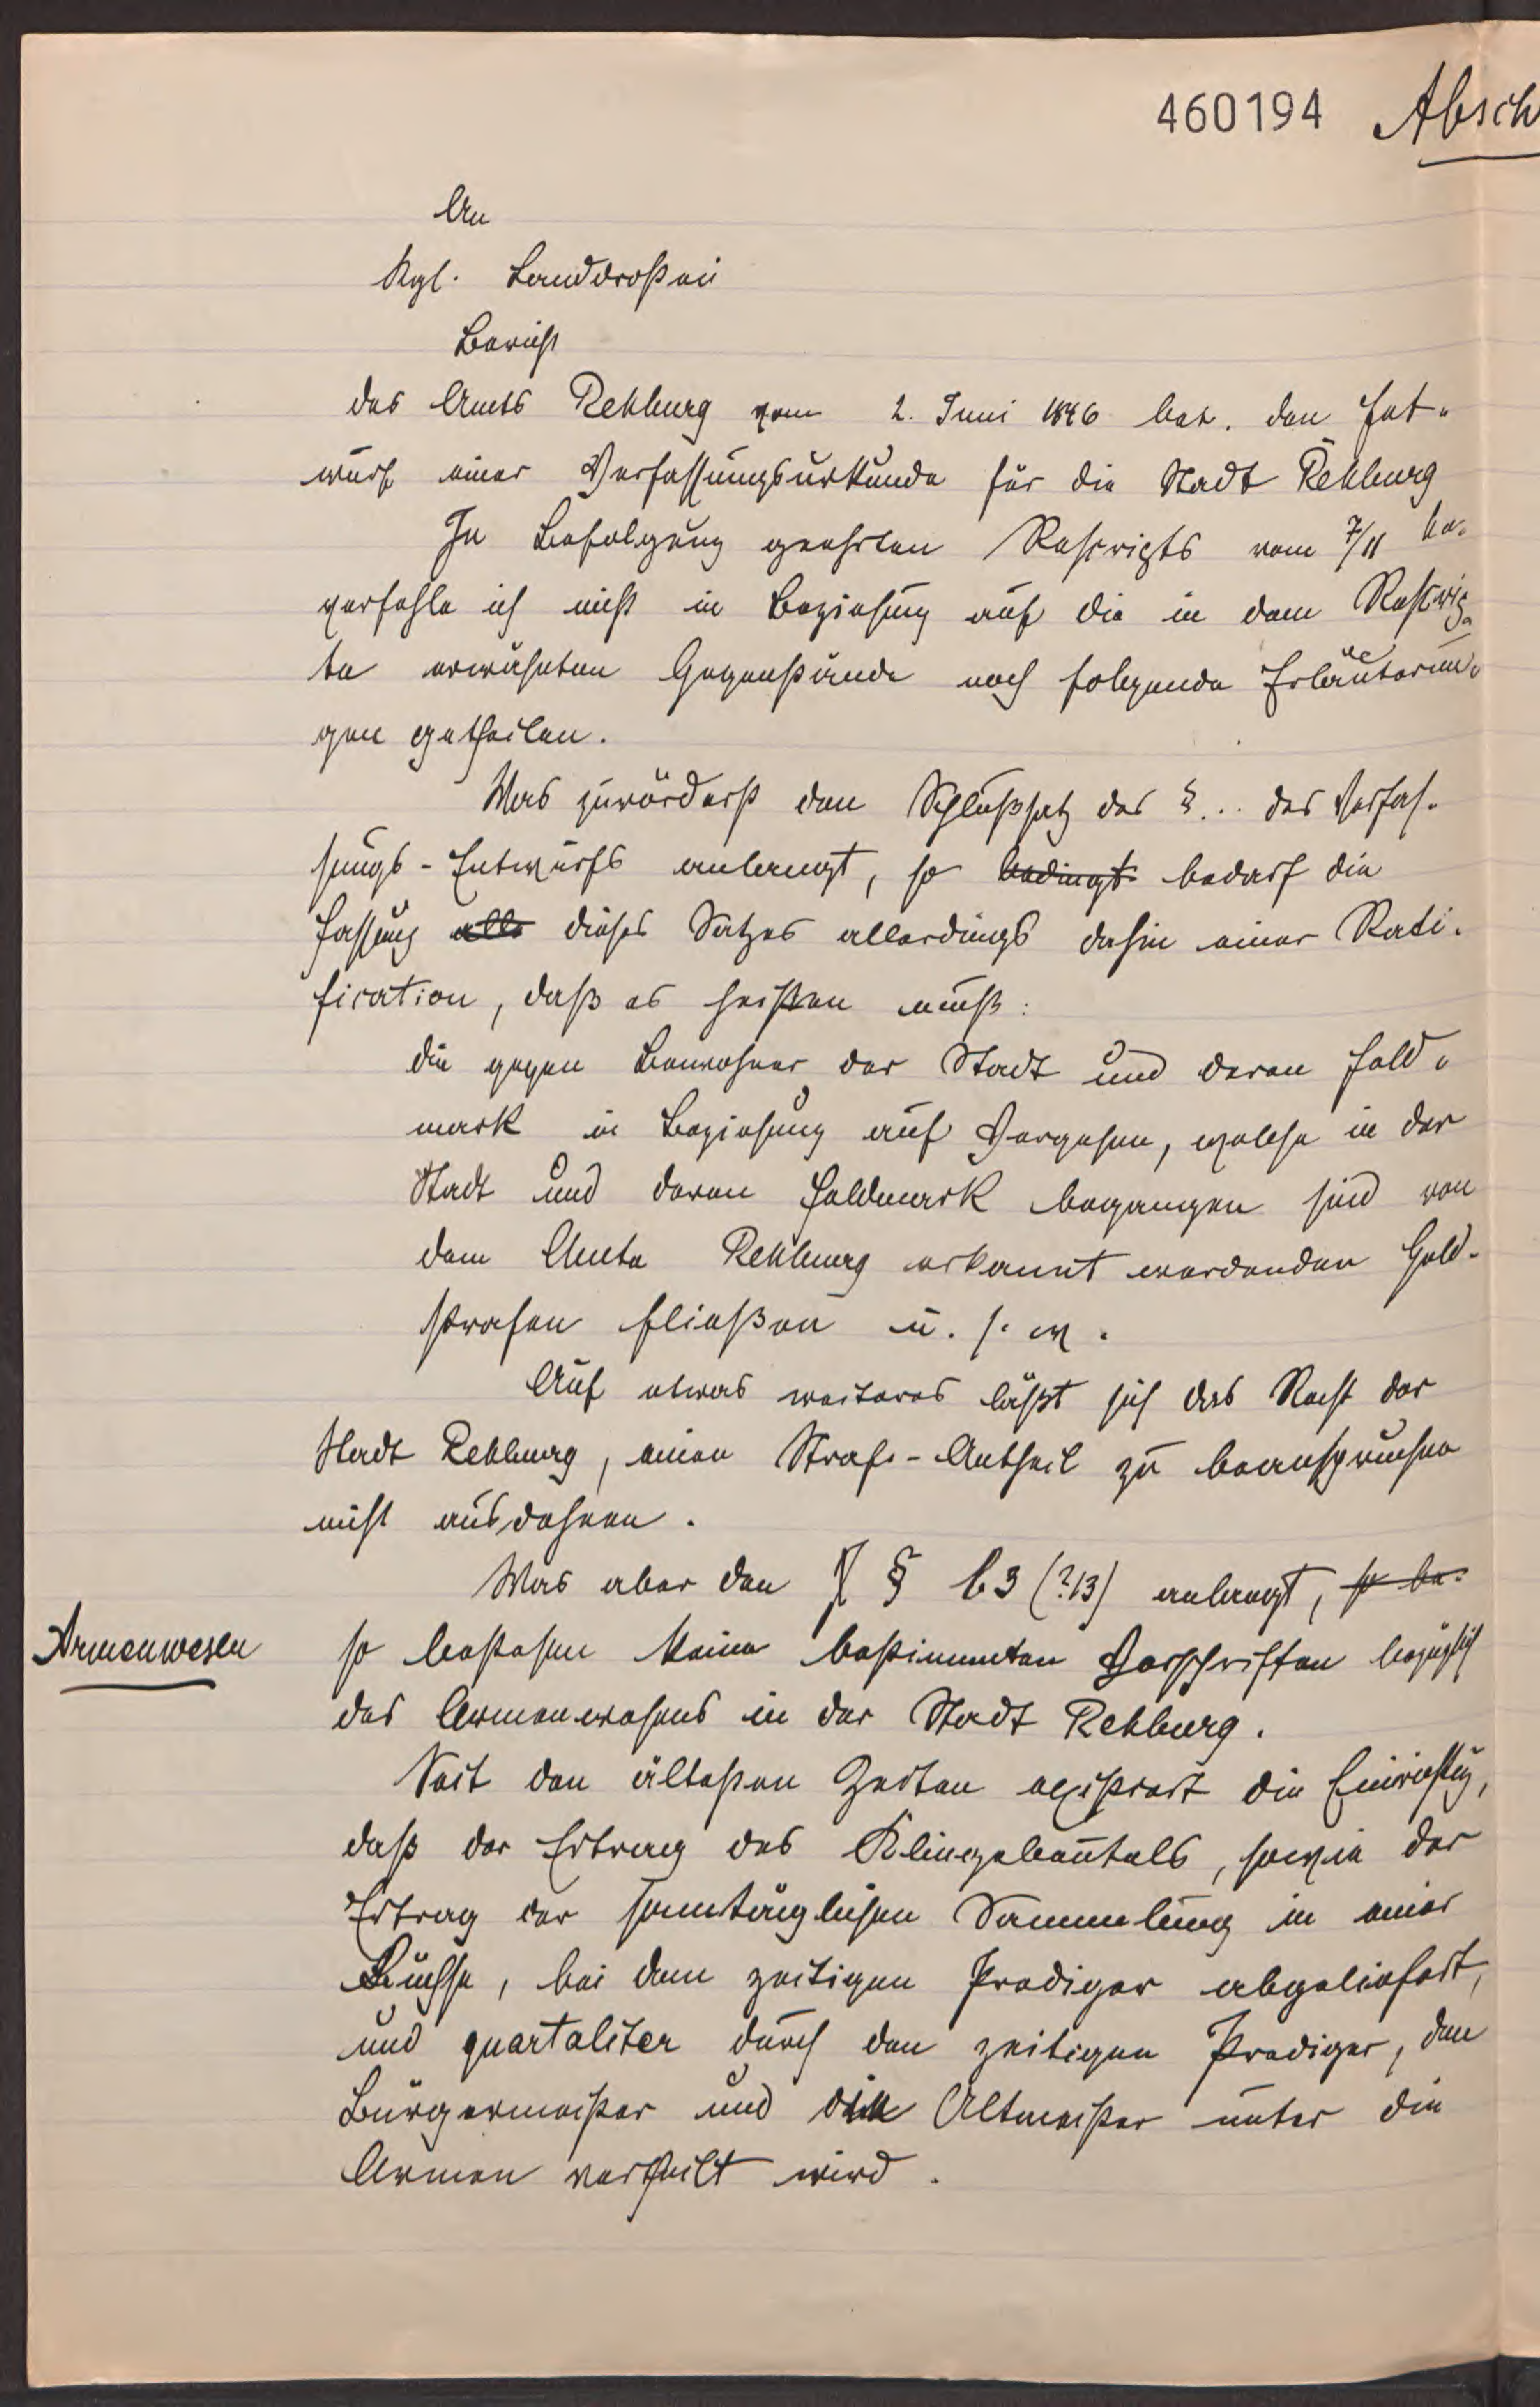 460194 Absch
An
Kgl. Landdrostei
Bericht
des Amts Rehburg vom 2. Juni 1846 betr. den Ent-
wurf einer Verfassungsurkunde für die Stadt Rehburg
In Befolgung geehrten Rescripts vom 7/11
verfehle ich nicht in Beziehung auf die in dem Rescrip-
te erwähnten Gegenstände noch folgende Erläuterun-
gen
Was zuvörderst den Schlußsatz des §... des Verfas-
sungs-Entwurfs anlangt, so bedingt bedarf die
Fassung alle dieses Satzes allerdings dahin einer Recti-
fication, daß es heißen muß:
die gegen Bewohner der Stadt und deren Feld-
mark in Beziehung auf Vergehen, welche in der
Stadt und deren Feldmark begangen sind von
dem Amte Rehburg erkannt werdenden Geld-
strafen fließen u. s. w.
Auf etwas weiteres läßt sich das Recht der
Stadt Rehburg, einen Straf-Antheil zu beanspruchen
nicht ausdehnen.
Was aber den § 63 (?13) anlangt, so be-
Armenwesen so bestehen keine bestimmten Vorschriften bezüglich
des Armenwesens in der Stadt Rehburg.
Seit den ältesten Zeiten existirt die Einrichtg,
daß der Ertrag des Klingebeutels, sowie der
Ertrag der sonntäglichen Sammlung in einer
Büchse, bei dem zeitigen Prediger abgeliefert,
und quartaliter durch den zeitigen Prediger, den
Bürgermeister und die Altmeister unter die
Armen vertheilt wird.